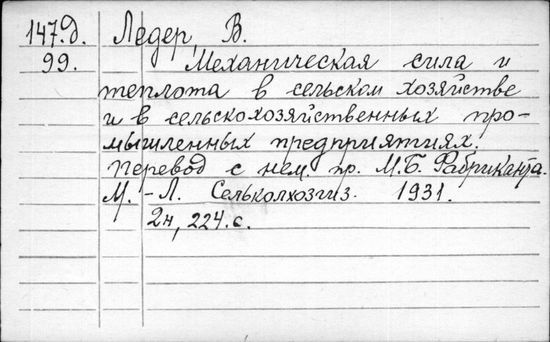 147.д. Ледер, В.
99. Механическая сила и
теплота в сельском хозяйстве
и в сельскохозяйственных про-
мышленных предприятиях.
Перевод с нем. пр. М.Б. Фабриканта.
М.-Л. Сельколхозгиз. 1931.
2н, 224.с.